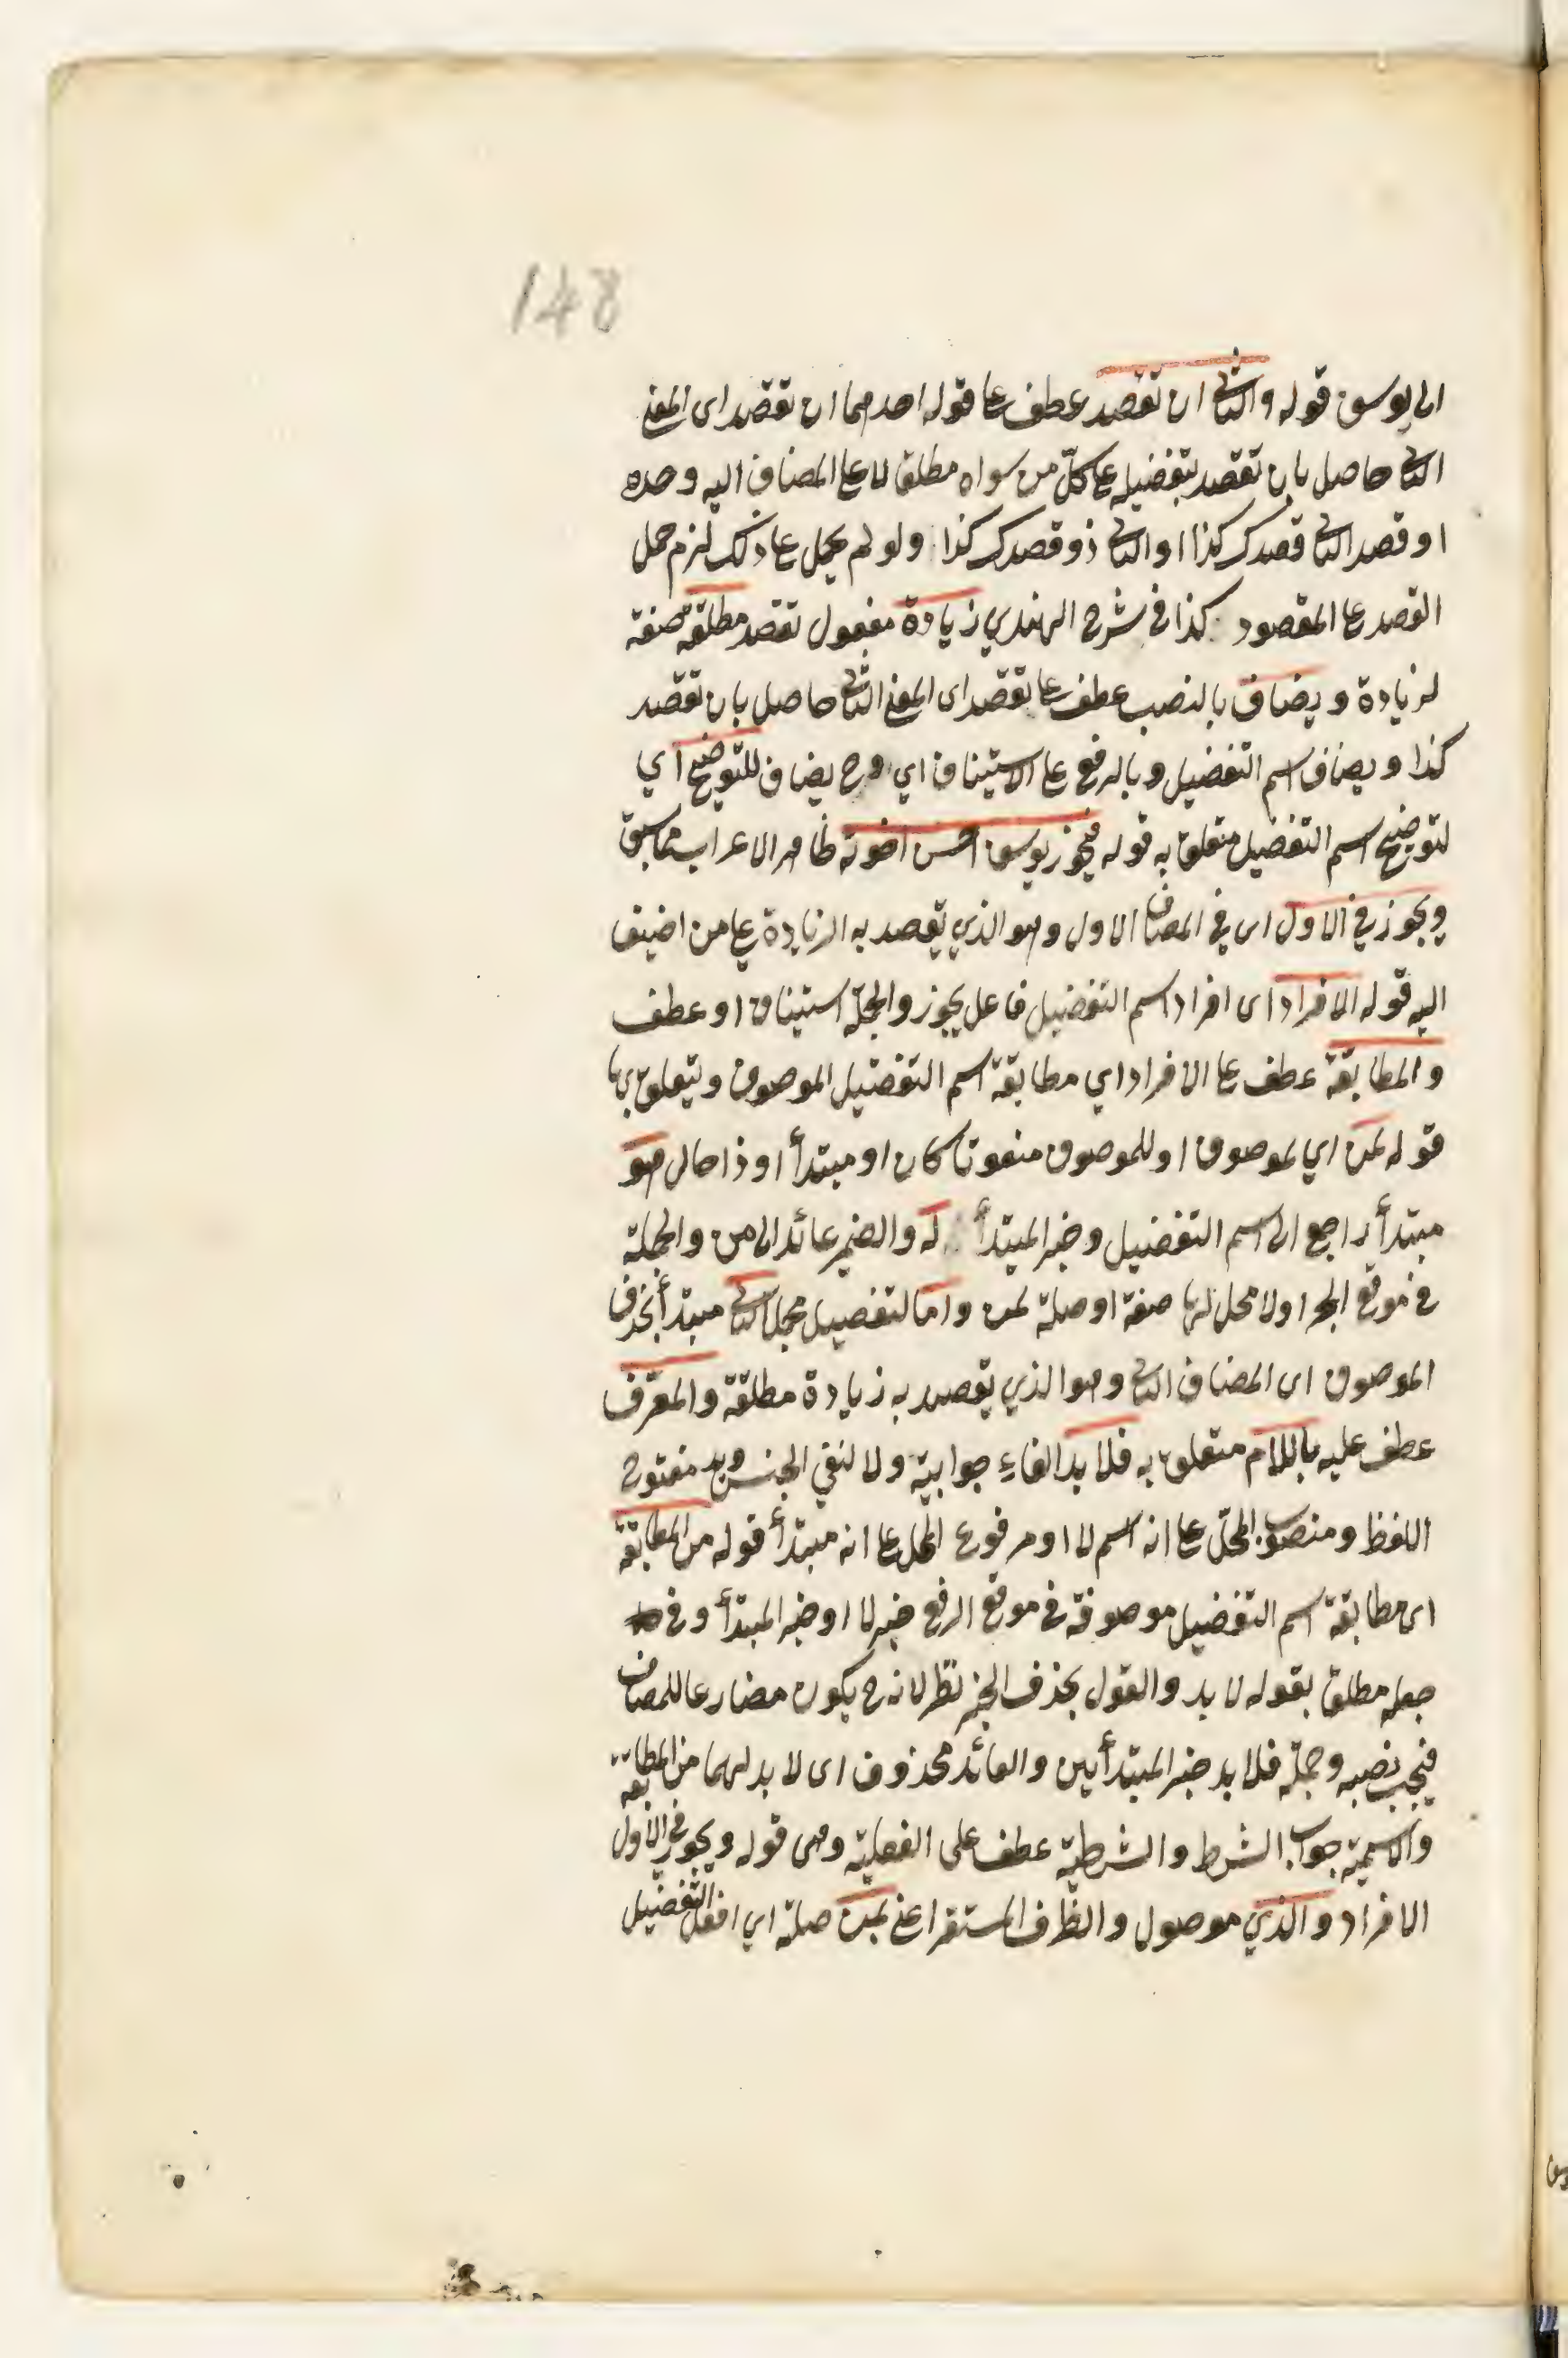 148
الى يوسف قوله والثانى ان تقصد عطف على قوله احدهما ان تقصد اى المعنى
الثانى حاصل بان تقصد بتفضيله على كلّ من سواه مطلقا لا على المضاف اليه وحده
او قصد الثانى قصدك كذا او الثانى ذو قصدك كذا ولو لم يحمل على ذلك لزم حمل
القصد على المقصود كذا فى شرح الهندي زيادة مفعول تقصد مطلقة صفة
لزيادة ويضاف بالنصب عطف على تقصد اى المعنى الثانى حاصل بان تقصد
كذا ويضاف اسم التفضيل وبالرفع على الاستيناف اي وح يضاف للتوضيح اي
لتوضيح اسم التفضيل متعلق به قوله فيجوز يوسف احسن اخوته ظاهر الاعراب مما سبق
ويجوز فى الاول اى في المضاف الاول وهو الذي يقصد به الزيادة على من اضيف
اليه قوله الافراد اى افراد اسم التفضيل فاعل يجوز والجملة استيناف او عطف
والمطابقة عطف على الافراد اي مطابقة اسم التفضيل الموصوف ويتعلق بها
قوله لمن اي لموصوف او للموصوف منعوتا كان او مبتدأ او ذا حال هو
مبتدأ راجع الى اسم التفضيل وخبر المبتدأ له والضمير عائد الى من والجملة
فى موقع الجر اولا محل لها صفة او صلة لمن واما لتفصيل مجمل الثانى مبتدأ بحذف
الموصوف اى المضاف الثانى وهو الذي يقصد به زيادة مطلقة والمعرّف
عطف عليه باللام متعلق به فلا بد الفاء جوابية ولا لنفي الجنس وبد مفتوح
اللفظ ومنصوب المحلّ على انه اسم لا او مرفوع المحل على انه مبتدأ قوله من المطابقة
اى مطابقة اسم التفضيل موصوفه فى موقع الرفع خبر لا او خبر المبتدأ وفى
جعله مطلقا بقوله لا بد والقول بحذف الخبر نظر لانه ح يكون مضارعا للمضاف
فيجب نصبه وجملة فلا بد خبر المبتدأين والعائد محذوف اى لا بد لهما من المطابقة
والاسمية جواب الشرط والشرطية عطف على الفعلية وهى قوله ويجوز فى الاول
الافراد والذي موصول والظرف المستقر اعنى بمن صلة اي افعل التفضيل